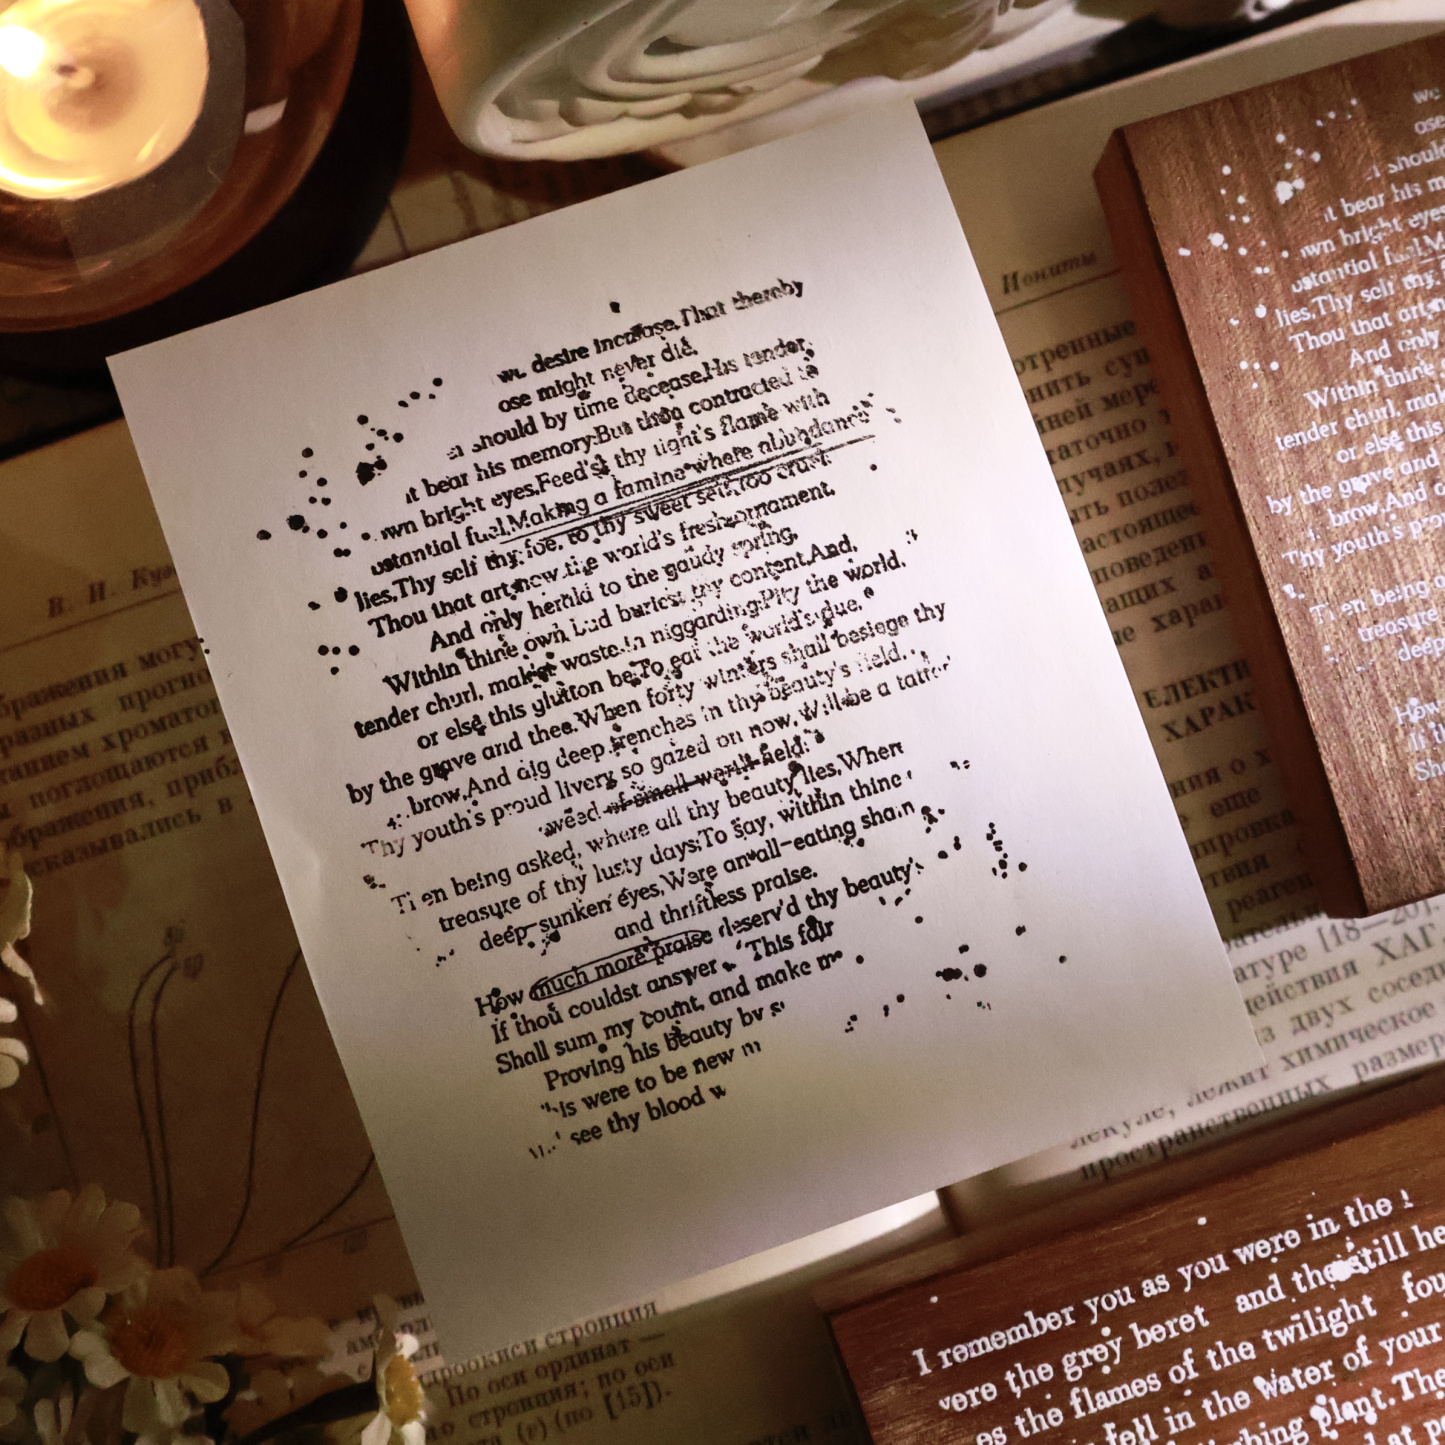 desire increase,That thereby
ose might never die.
should by time decease,His tender
it bear his memory:But thou contracted to
wn bright eyes,Feed'st thy light's flame with
ustantial fuel,Making a famine where abundance
lies,Thy self thy foe, to thy sweet self too cruel:
Thou that art now the world's fresh ornament,
And only herald to the gaudy spring,
Within thine own bud buriest thy content,And,
tender churl, mak'st waste in niggarding:Pity the world,
or else this glutton be,To eat the world's due,
by the grave and thee.When forty winters shall besiege thy
brow,And dig deep trenches in thy beauty's field,
Thy youth's proud livery so gazed on now, Will be a tatter
weed of small worth held:
Then being asked, where all thy beauty lies,Where
treasure of thy lusty days;To say, within thine
deep-sunken eyes,Were an all-eating sham
and thriftless praise.
How much more praise deserv'd thy beauty'
If thou couldst answer 'This fair
Shall sum my count, and make m
Proving his beauty by s
his were to be new m
see thy blood w
Иониты
В. И. Куз
бражения могу
разных прогно
танием хроматог
ы поглощаются
ображения, прибл
сказывались в
отренные
нить сущ
таточно
лучаях,
настоящее
поведени
ЕЛЕКТИ
ХАРАК
ния о х
еще
реаген
атуре [18—20].
действия ХАГ
из двух сосед
лежит химическое
лекуле,
пространственных размер
дроокиси стронция
По оси ординат —
о стронция; по оси
(v) (по [15]).
we
ose
should
it bear his m
wn bright eyes
ustantial fuel,M
lies,Thy self thy
Thou that art n
And only
Within thine
tender churl, mak
or else this
by the grave and
brow,And d
Thy youth's pro
Then being a
treasure
deep
How
If th
Sha
I remember you as you were in the l
were the grey beret and the still he
es the flames of the twilight fou
fell in the water of your
bing plant.The
at p